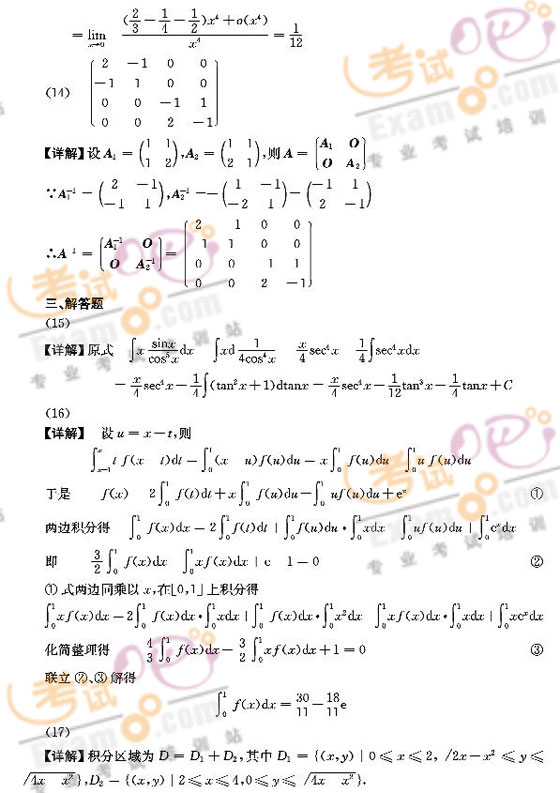 = lim_{x→0} ((2/3 − 1/4 − 1/2)x⁴ + o(x⁴)) / x⁴ = 1/12
(14)
2 −1 0 0
−1 1 0 0
0 0 −1 1
0 0 2 −1
【详解】设 A₁ = (1 1; 1 2), A₂ = (1 1; 2 1), 则 A = (A₁ O; O A₂)
∵ A₁⁻¹ − (2 −1; −1 1), A₂⁻¹ − −(1 −1; −2 1) − (−1 1; 2 −1)
∴ A⁻¹ = (A₁⁻¹ O; O A₂⁻¹) =
2 1 0 0
1 1 0 0
0 0 1 1
0 0 2 −1
三、解答题
(15)
【详解】原式 ∫ x sinx/cos⁵x dx ∫ xd 1/4cos⁴x x/4 sec⁴x 1/4 ∫ sec⁴xdx
− x/4 sec⁴x − 1/4 ∫(tan²x + 1)dtanx − x/4 sec⁴x − 1/12 tan³x − 1/4 tanx + C
(16)
【详解】 设 u = x − t, 则
∫_{x−1}^{x} t f(x t)dt − ∫₀¹ (x u)f(u)du − x∫₀¹ f(u)du ∫₀¹ u f(u)du
于是 f(x) 2∫₀¹ f(t)dt + x∫₀¹ f(u)du − ∫₀¹ uf(u)du + eˣ ①
两边积分得 ∫₀¹ f(x)dx − 2∫₀¹ f(t)dt | ∫₀¹ f(u)du · ∫₀¹ xdx ∫₀¹ uf(u)du | ∫₀¹ eˣdx
即 3/2 ∫₀¹ f(x)dx ∫₀¹ xf(x)dx | e 1 − 0 ②
① 式两边同乘以 x, 在[0,1]上积分得
∫₀¹ xf(x)dx − 2∫₀¹ f(x)dx · ∫₀¹ xdx | ∫₀¹ f(x)dx · ∫₀¹ x²dx ∫₀¹ xf(x)dx · ∫₀¹ xdx | ∫₀¹ xeˣdx
化简整理得 4/3 ∫₀¹ f(x)dx − 3/2 ∫₀¹ xf(x)dx + 1 = 0 ③
联立 ②、③ 解得
∫₀¹ f(x)dx = 30/11 − 18/11 e
(17)
【详解】积分区域为 D = D₁ + D₂, 其中 D₁ = {(x,y) | 0 ≤ x ≤ 2, √2x−x² ≤ y ≤
√4x x²}, D₂ − {(x,y) | 2 ≤ x ≤ 4, 0 ≤ y ≤ √4x x²}.
考试
Exam8.com
专业考试培训站